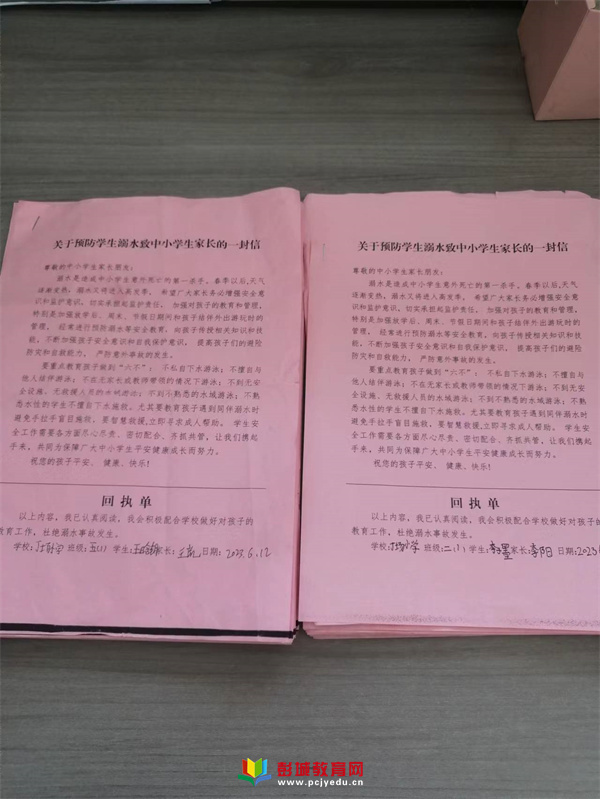 关于预防学生溺水致中小学生家长的一封信
尊敬的中小学生家长朋友:
溺水是造成中小学生意外死亡的第一杀手。春季以后,天气
逐渐变热,溺水又将进入高发季。 希望广大家长务必增强安全意
识和监护意识,切实承担起监护责任。 加强对孩子的教育和管理,
特别是加强放学后、周末、节假日期间和孩子结伴外出游玩时的
管理, 经常进行预防溺水等安全教育,向孩子传授相关知识和技
能,不断加强孩子安全意识和自我保护意识, 提高孩子们的避险
防灾和自救能力, 严防意外事故的发生。
要重点教育孩子做到“六不”: 不私自下水游泳;不擅自与
他人结伴游泳;不在无家长或教师带领的情况下游泳;不到无安
全设施、无救援人员的水域游泳;不到不熟悉的水域游泳;不熟
悉水性的学生不擅自下水施救。尤其要教育孩子遇到同伴溺水时
避免手拉手盲目施救, 要智慧救援,立即寻求成人帮助。 学生安
全工作需要各方面尽心尽责、密切配合、齐抓共管,让我们携起
手来,共同为保障广大中小学生平安健康成长而努力。
祝您的孩子平安、 健康、快乐!
回执单
以上内容,我已认真阅读,我会积极配合学校做好对孩子的
教育工作,杜绝溺水事故发生。
学校: 班级:五(1) 学生: 家长: 日期:2023.6.12
关于预防学生溺水致中小学生家长的一封信
尊敬的中小学生家长朋友:
溺水是造成中小学生意外死亡的第一杀手。春季以后,天气
逐渐变热,溺水又将进入高发季。 希望广大家长务必增强安全意
识和监护意识,切实承担起监护责任。 加强对孩子的教育和管理,
特别是加强放学后、周末、节假日期间和孩子结伴外出游玩时的
管理, 经常进行预防溺水等安全教育,向孩子传授相关知识和技
能,不断加强孩子安全意识和自我保护意识, 提高孩子们的避险
防灾和自救能力, 严防意外事故的发生。
要重点教育孩子做到“六不”: 不私自下水游泳;不擅自与
他人结伴游泳;不在无家长或教师带领的情况下游泳;不到无安
全设施、无救援人员的水域游泳;不到不熟悉的水域游泳;不熟
悉水性的学生不擅自下水施救。尤其要教育孩子遇到同伴溺水时
避免手拉手盲目施救, 要智慧救援,立即寻求成人帮助。 学生安
全工作需要各方面尽心尽责、密切配合、齐抓共管,让我们携起
手来,共同为保障广大中小学生平安健康成长而努力。
祝您的孩子平安、 健康、快乐!
回执单
以上内容,我已认真阅读,我会积极配合学校做好对孩子的
教育工作,杜绝溺水事故发生。
学校: 小学 班级:二(1) 学生: 家长:李阳 日期:2023
彭城教育网
www.pcjyedu.cn